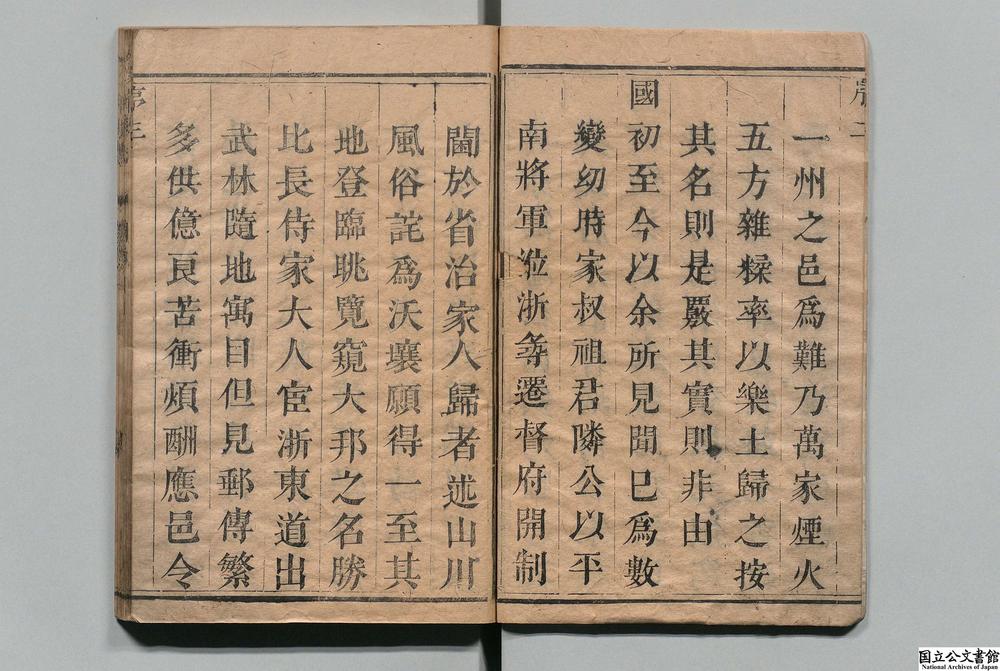 一州之邑爲難乃萬家煙火
五方雜糅率以樂土歸之按
其名則是覈其實則非由
國初至今以余所見聞已爲數
變幼時家叔祖君隣公以平
南將軍涖浙尋遷督府開制
閫於省治家人歸者述山川
風俗詫爲沃壤願得一至其
地登臨眺覽窺大邦之名勝
比長侍家大人宦浙東道出
武林隨地寓目但見郵傳繁
多供億良苦衝煩酬應邑令
序三
国立公文書館
National Archives of Japan